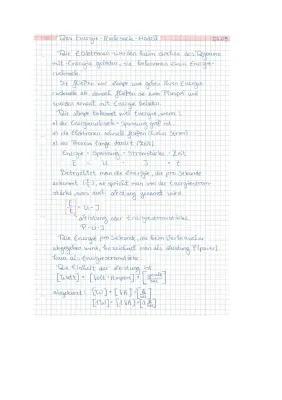 Das Energie-Rucksack-Modell
Die Elektronen werden beim
mit Energie geladen, sie bekommen einen Energie-
rucksack.
Sie fließen zur Lampe und geben ihren Energie-
rucksack ab danach fließen sie zum Pluspol und
werden erneut mit Energie beladen.
Die Lampe bekommt viel Energie, wenn:
a) der Energierucksack = Spannung groß ist
b) die Elektronen schnell fließen (hoher Strom)
c) der Prozess lange dauert (Zeit)
Energie = Spannung · Stromstärke · Zeit
E = U · I · t
Betrachtet man die Energie, die pro Sekunde
ankommt, so spricht man von der Energiestrom-
stärke, was auch Leistung genannt wird
E/t = U · I
Leistung oder Energiestromstärke
P = U · I
Die Energie pro Sekunde, die beim Verbraucher
abgegeben wird, bezeichnet man als Leistung P (power)
bzw. als Energiestromstärke
Die Einheit der Leistung ist
[Watt] = [Volt · Ampere] =
abgekürzt: [1W] = [1VA] =